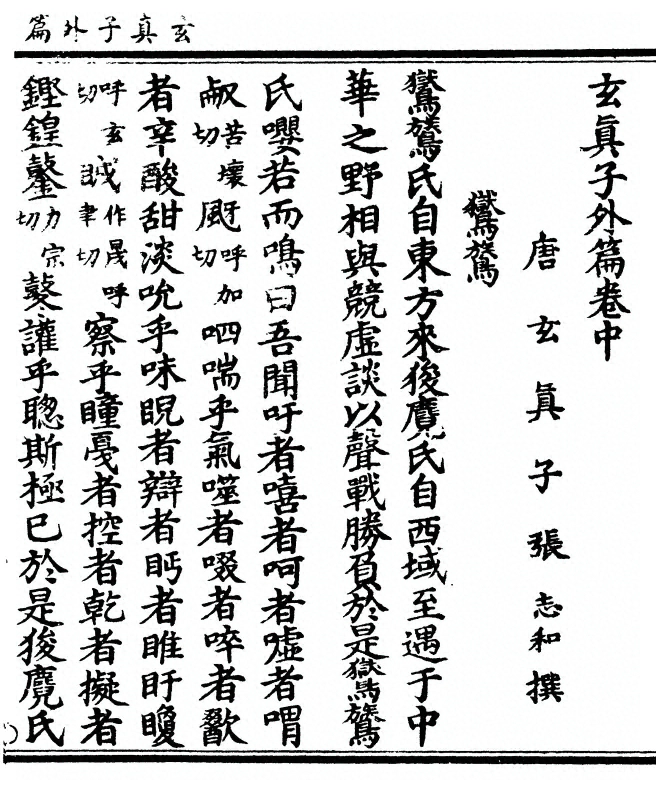 玄真子外篇
玄真子外篇卷中
唐玄真子張志和撰
鸑鷟
鸑鷟氏自東方來狻麑氏自西域至遇于中
華之野相與競虛談以聲戰勝負於是鸑鷟
氏嚶若而鳴曰吾聞吁者嘻者呵者嘘者喟
㕟苦壞切颬呼加切呬喘乎氣噬者啜者啐者歠
者辛酸甜淡吮乎味睨者辯者眄者睢盱矎
呼玄切作晟呼聿切察乎瞳戞者控者乾者擬者
鏗鍠鼞力宗切鼜讙乎聰斯極巳於是狻麑氏